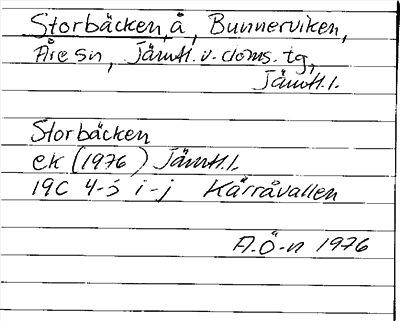 Storbäcken, å, Bunnerviken,
Åre sn, Jämtl. v. doms. tg,
Jämtl. l.
Storbäcken
ek (1976) Jämtl. l.
19C 4-5 i-j Kärråvallen
A.Ö-n 1976